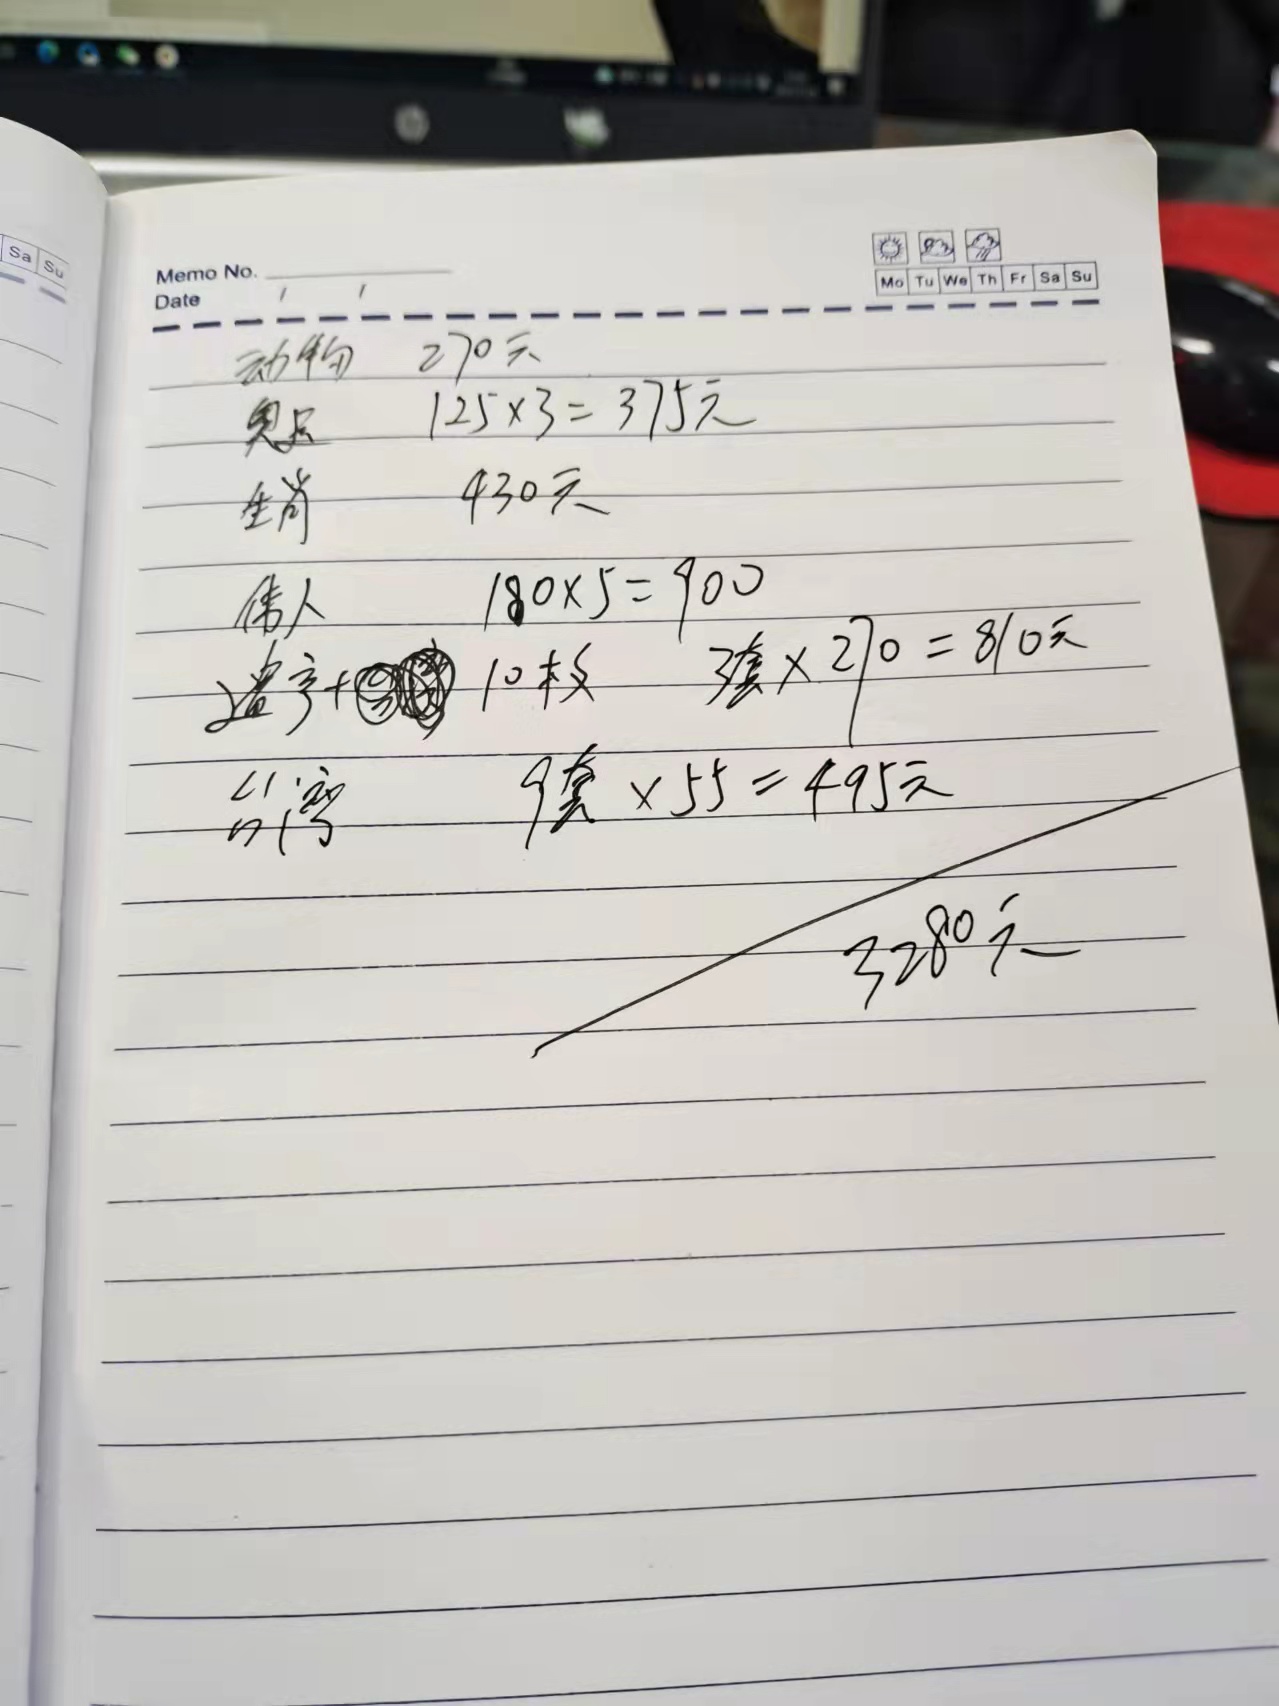 Sa Su
Memo No.
Date / /
Mo Tu We Th Fr Sa Su
动物 270元
奥足 125×3=375元
生肖 430元
伟人 180×5=900
遗产+ 10枚 3套×270=810元
台湾 9套×55=495元
3280元